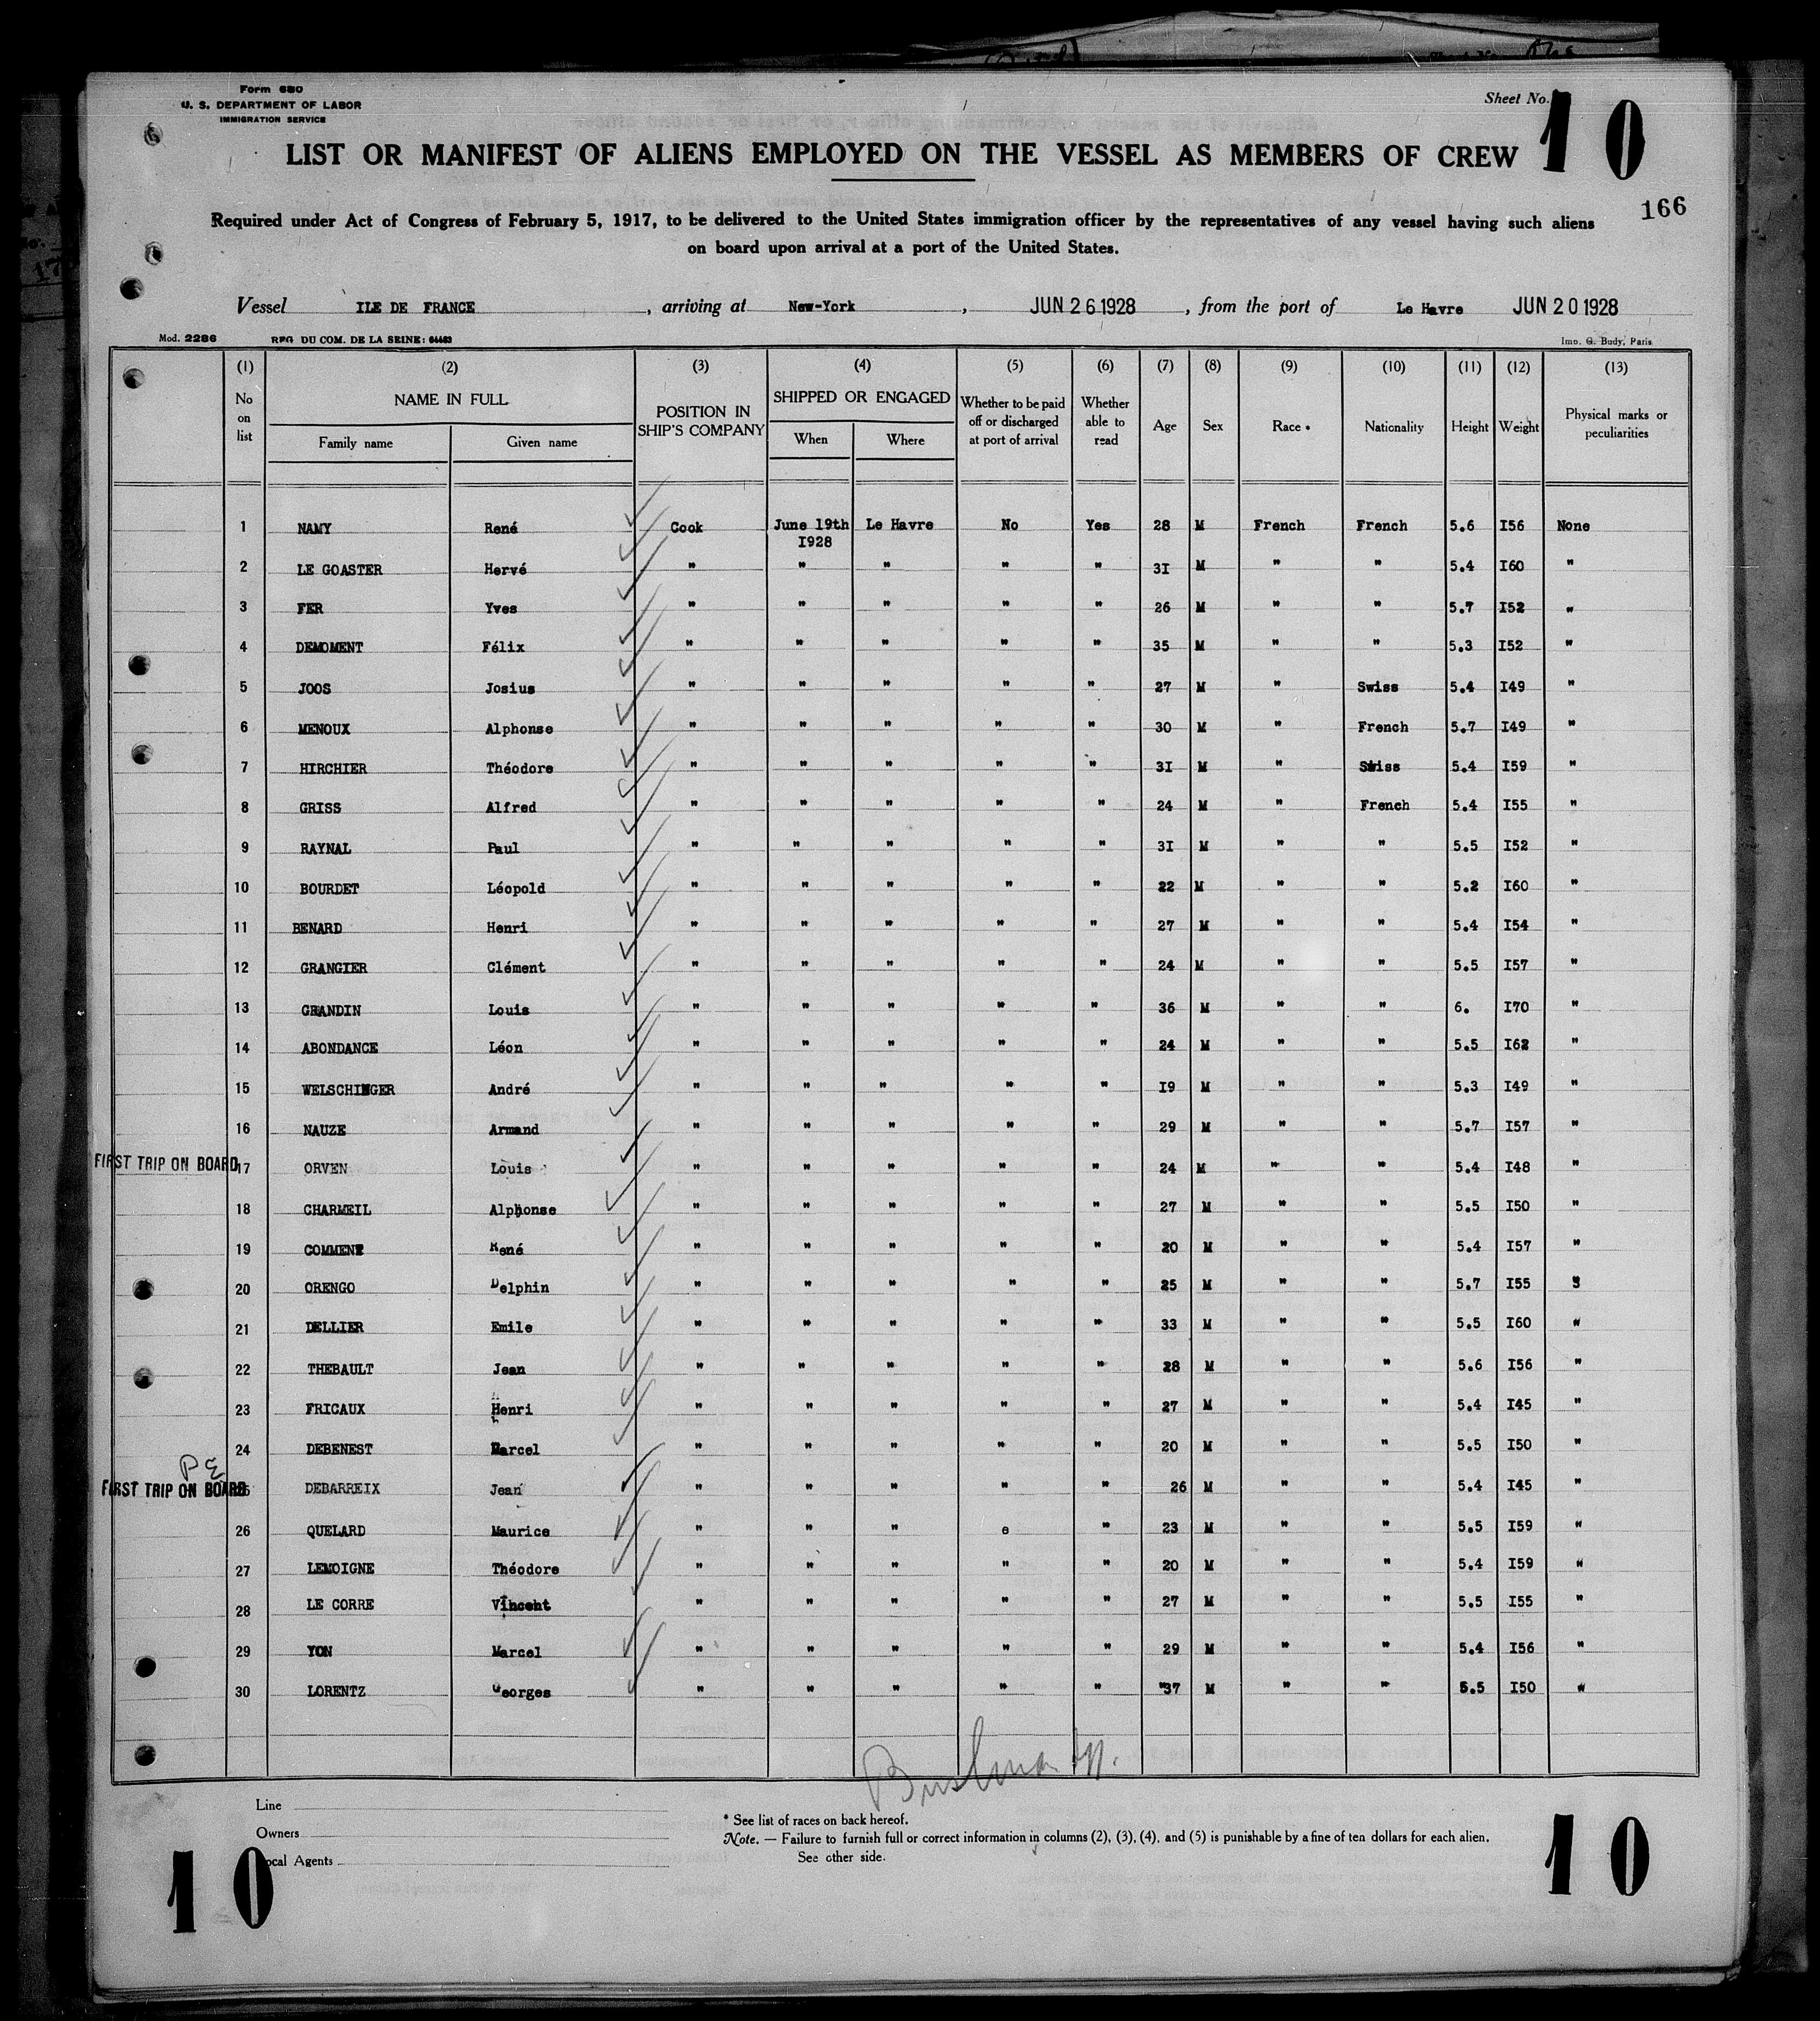 Form 680
U. S. DEPARTMENT OF LABOR
IMMIGRATION SERVICE
Sheet No. 10
LIST OR MANIFEST OF ALIENS EMPLOYED ON THE VESSEL AS MEMBERS OF CREW
166
Required under Act of Congress of February 5, 1917, to be delivered to the United States immigration officer by the representatives of any vessel having such aliens
on board upon arrival at a port of the United States.
Vessel ILE DE FRANCE , arriving at New-York , JUN 26 1928 , from the port of Le Havre JUN 20 1928
Mod. 2286 REG DU COM. DE LA SEINE: 64463 Imp. G. Budy, Paris
(1) (2) (3) (4) (5) (6) (7) (8) (9) (10) (11) (12) (13)
No on list NAME IN FULL Family name Given name POSITION IN SHIP'S COMPANY SHIPPED OR ENGAGED When Where Whether to be paid off or discharged at port of arrival Whether able to read Age Sex Race * Nationality Height Weight Physical marks or peculiarities
1 NAMY René Cook June 19th I928 Le Havre No Yes 28 M French French 5.6 I56 None
2 LE GOASTER Hervé " " " " " 3I M " " 5.4 I60 "
3 FER Yves " " " " " 26 M " " 5.7 I52 "
4 DEMOMENT Félix " " " " " 35 M " " 5.3 I52 "
5 JOOS Josius " " " " " 27 M " Swiss 5.4 I49 "
6 MENOUX Alphonse " " " " " 30 M " French 5.7 I49 "
7 HIRCHIER Théodore " " " " " 3I M " Swiss 5.4 I59 "
8 GRISS Alfred " " " " " 24 M " French 5.4 I55 "
9 RAYNAL Paul " " " " " 3I M " " 5.5 I52 "
10 BOURDET Léopold " " " " " 22 M " " 5.2 I60 "
11 BENARD Henri " " " " " 27 M " " 5.4 I54 "
12 GRANGIER Clément " " " " " 24 M " " 5.5 I57 "
13 GRANDIN Louis " " " " " 36 M " " 6. I70 "
14 ABONDANCE Léon " " " " " 24 M " " 5.5 I62 "
15 WELSCHINGER André " " " " " I9 M " " 5.3 I49 "
16 NAUZE Armand " " " " " 29 M " " 5.7 I57 "
FIRST TRIP ON BOARD 17 ORVEN Louis " " " " " 24 M " " 5.4 I48 "
18 CHARMEIL Alphonse " " " " " 27 M " " 5.5 I50 "
19 COMMENT René " " " " " 20 M " " 5.4 I57 "
20 ORENGO Delphin " " " " " 25 M " " 5.7 I55 "
21 DELLIER Emile " " " " " 33 M " " 5.5 I60 "
22 THEBAULT Jean " " " " " 28 M " " 5.6 I56 "
23 FRICAUX Henri " " " " " 27 M " " 5.4 I45 "
24 DEBENEST Marcel " " " " " 20 M " " 5.5 I50 "
FIRST TRIP ON BOARD 25 DEBARREIX Jean " " " " " 26 M " " 5.4 I45 "
26 QUELARD Maurice " " " e " 23 M " " 5.5 I59 "
27 LEMOIGNE Théodore " " " " " 20 M " " 5.4 I59 "
28 LE CORRE Vincent " " " " " 27 M " " 5.5 I55 "
29 YON Marcel " " " " " 29 M " " 5.4 I56 "
30 LORENTZ Georges " " " " " "37 M " " 5.5 I50 "
Line
Owners
Local Agents
* See list of races on back hereof.
Note. — Failure to furnish full or correct information in columns (2), (3), (4), and (5) is punishable by a fine of ten dollars for each alien.
See other side.
10 10